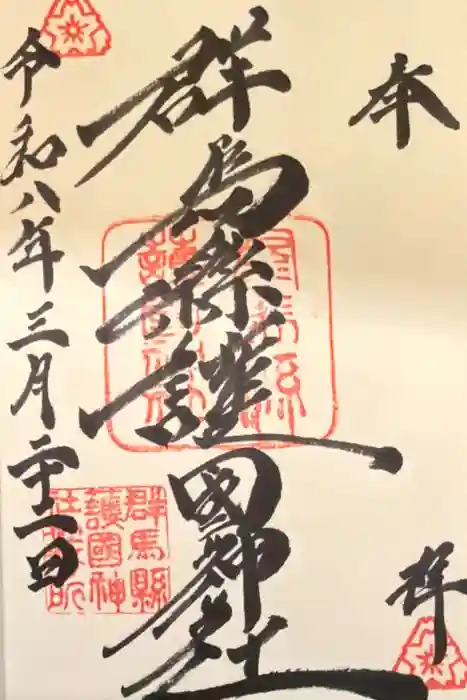 奉拝
群馬縣護國神社
令和八年三月二十二日
群馬縣
護國神
社務所